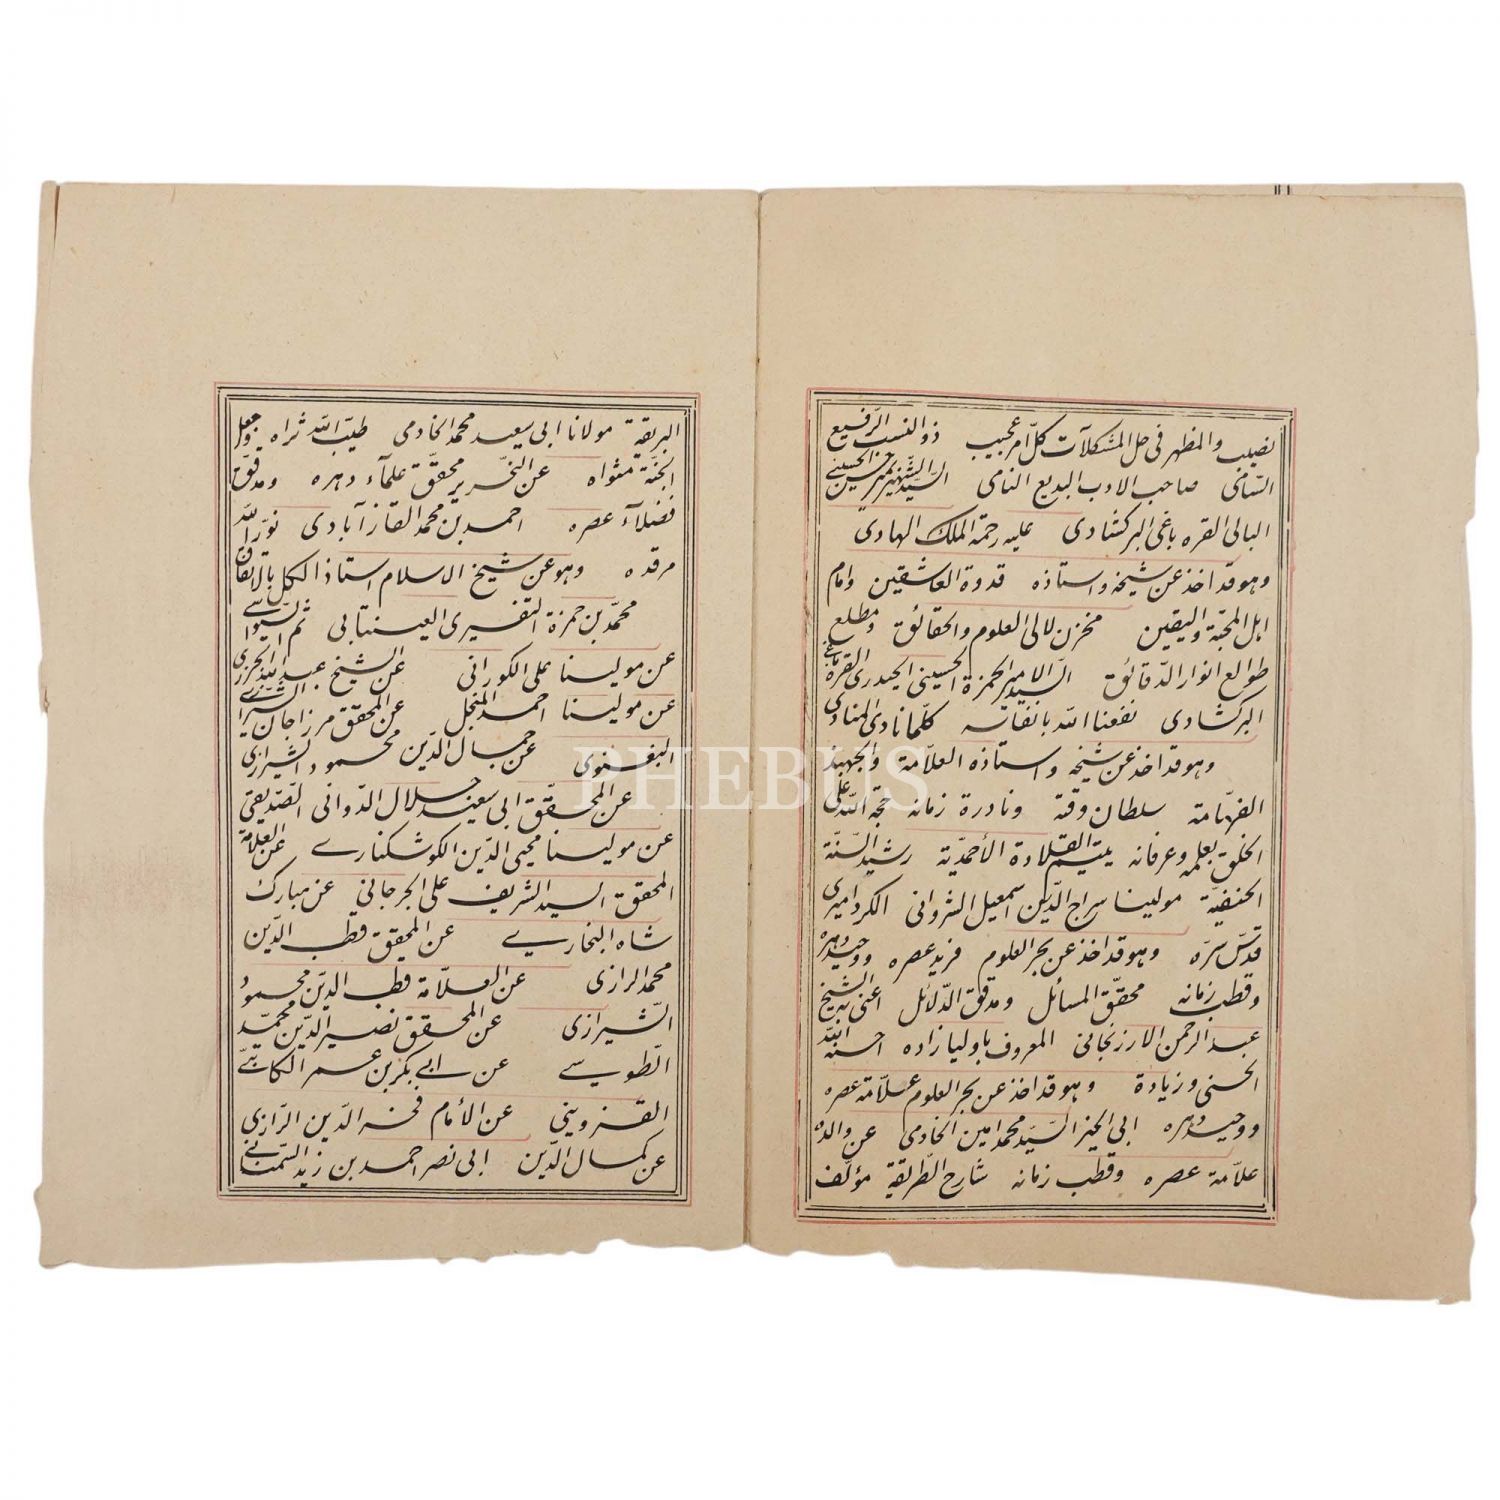 نصيب والمظهر فى حل المشكلات كل امر عجيب ذو النسب الرفيع
السّامى صاحب الادب البديع النامى السيّد الشهير بمير حسن الحسينى
البالى القره باغى البركشادى عليه رحمة الملك الهادى
وهو قد اخذ عن شيخه واستاذه قدوة العاشقين وامام
اهل المحبة واليقين مخزن لالى العلوم والحقائق ومطلع
طوالع انوار الدّقائق السيّد الامير الحمزة الحسينى الحيدرى القره باغى
البركشادى نفعنا الله بانفاسه كلما نادى المنادى
وهو قد اخذ عن شيخه واستاذه العلاّمة والجهبذ
الفهّامة سلطان وقته ونادرة زمانه حجّة الله على
الخلق بعلمه وعرفانه يتيم القلادة الأحمديّة رشيد السنّة
الحنفيّة مولينا سراج الدّين اسمعيل الشروانى الكردامیرى
قدّس سرّه وهو قد اخذ عن بحر العلوم فريد عصره ووحيد دهره
وقطب زمانه محقّق المسائل ومدقّق الدّلائل اعنى به الشيخ
عبد الرحمن الارزنجانى المعروف باوليا زاده احسنه الله
الحسنى وزيادة وهو قد اخذ عن بحر العلوم علاّمة عصره
ووحيد دهره ابى الخير السيّد محمد امين الخادمى عن والده
علاّمة عصره وقطب زمانه شارح الطّريقة مؤلّف
البريقة مولانا ابى سعيد محمد الخادمى طيّب الله ثراه وجعل
الجنّة مثواه عن النحرير محقّق علماء دهره ومدقّق
فضلاء عصره احمد بن محمد القازآبادى نوّر الله
مرقده وهو عن شيخ الاسلام استاذ الكل بالاتفاق
محمّد بن حمزة التفسيرى العينتابى ثم السّيواسى
عن مولينا على الكورانى عن الشيخ عبد الله الجزرى
عن مولينا احمد المنجل عن المحقق مرزا جان الشيرازى
البغنوى عن جمال الدّين محمود الشيرازى
عن المحقّق ابى سعيد جلال الدّوانى الصّديقى
عن مولينا محيى الدّين الكوشكنارى عن العلامة
المحقق السيد الشريف على الجرجانى عن مبارك
شاه البخارى عن المحقق قطب الدّين
محمد الرازى عن العلاّمة قطب الدّين محمود
الشّيرازى عن المحقق نصير الدّين محمّد
الطّوسى عن ابى بكر بن عمر الكاتبى
القزوينى عن الأمام فخر الدّين الرّازى
عن كمال الدّين ابى نصر احمد بن زيد السّمنانى
PHEBUS